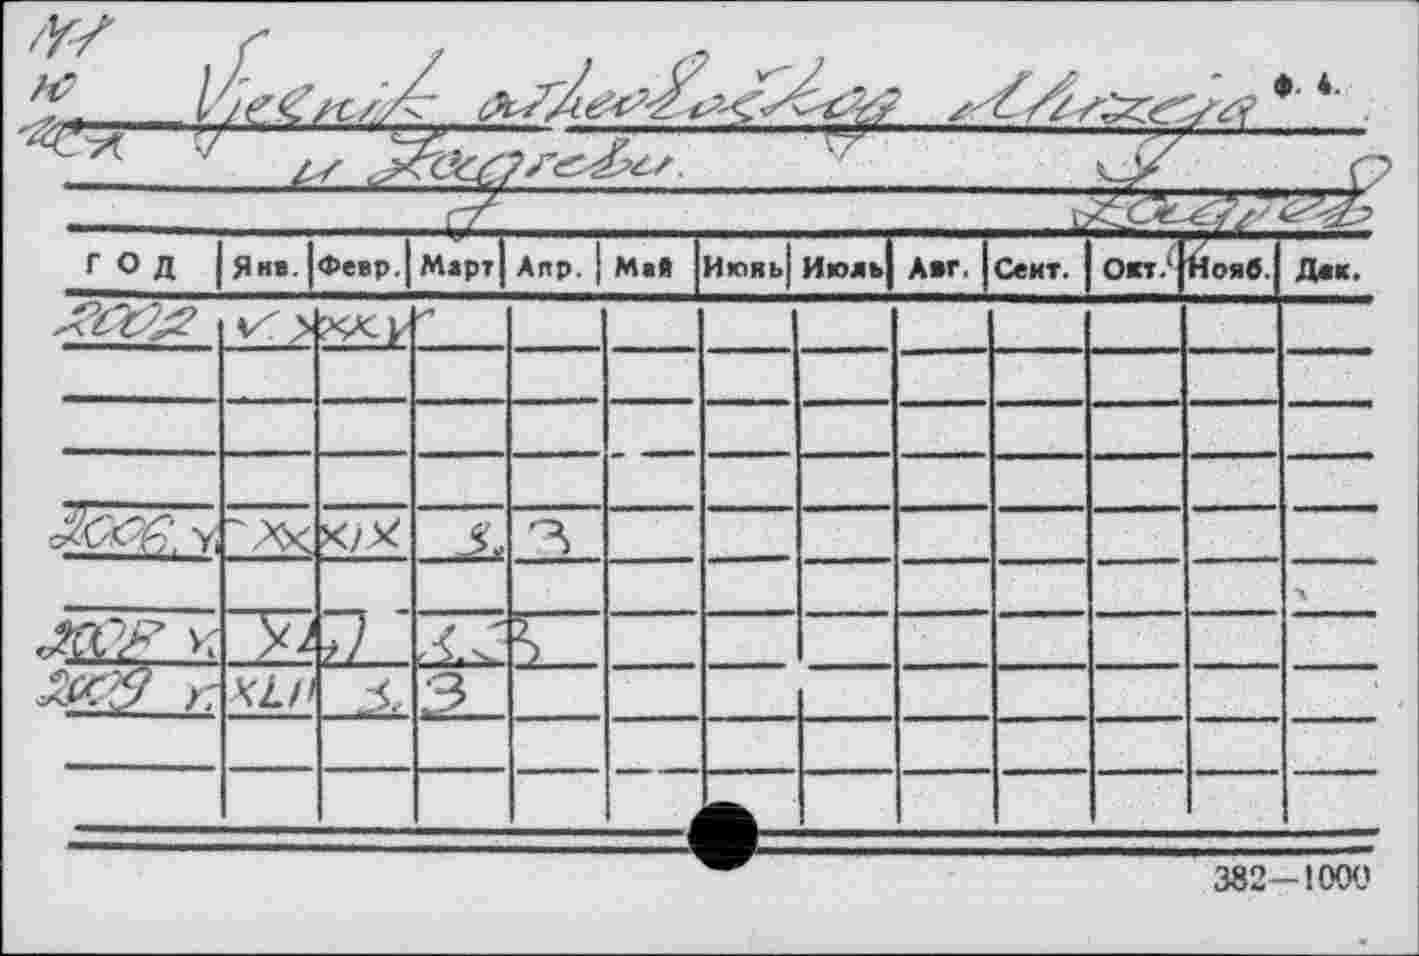 Vjesnik arheološkog Muzeja Ф. 4.
u Zagrebu.
Zagreb
ГОД Янв. Февр. Март Апр. Май Июнь Июль Авг. Сент. Окт. Нояб. Дек.
2002 V. XXXV
2006. V XXXIX 3. З
2008 V. XLI 3. З
2009 V. XLII 3. З
382—1000